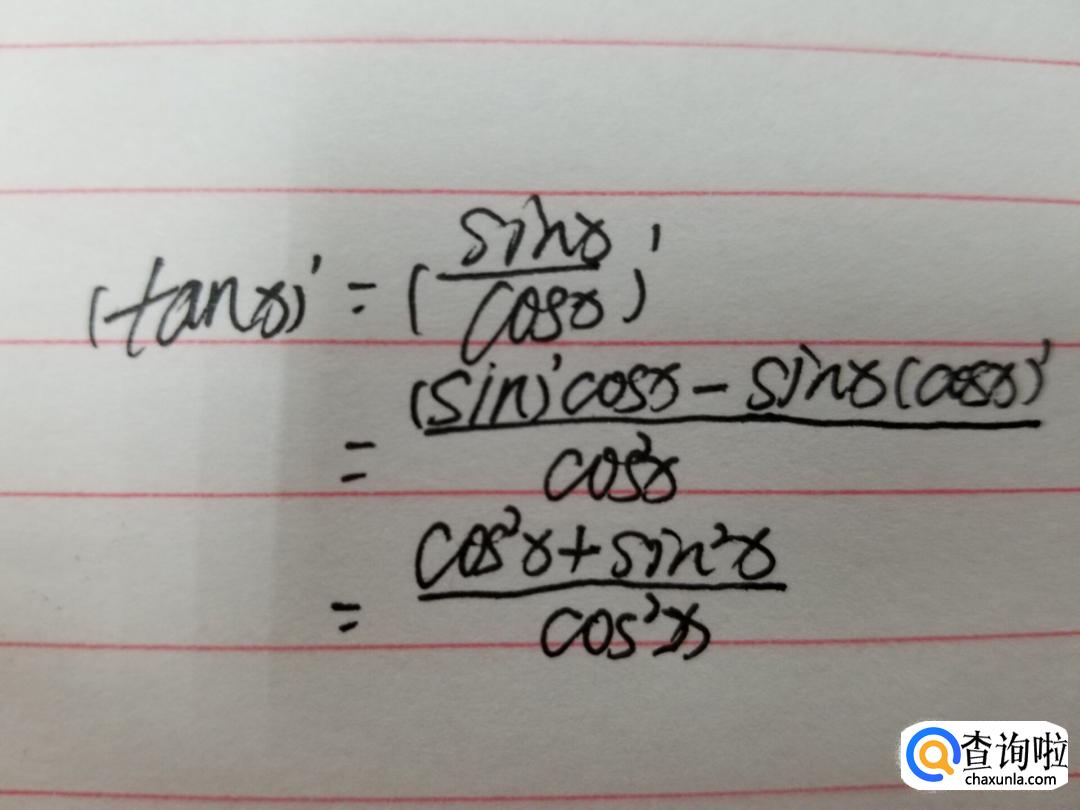 (tanx)' = (sinx/cosx)'
= ((sin)'cosx - sinx(cosx)')/cos²x
= (cos²x + sin²x)/cos²x
查询啦
chaxunla.com